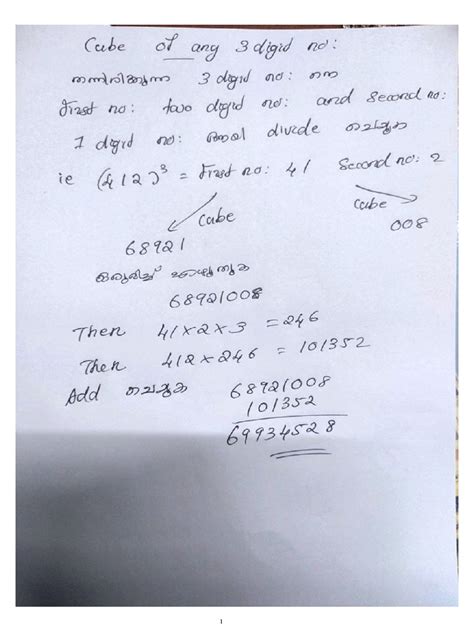 Cube of any 3 digit no:
തന്നിരിക്കുന്ന 3 digit no: നെ
First no: two digit no: and second no:
1 digit no: ആയി divide ചെയ്യുക
ie (412)³ = First no: 41 Second no: 2
Cube Cube
68921 008
ഒരുമിച്ച് എഴുതുക
68921008
Then 41×2×3 = 246
Then 412×246 = 101352
Add ചെയ്യുക 68921008
101352
69934528
1